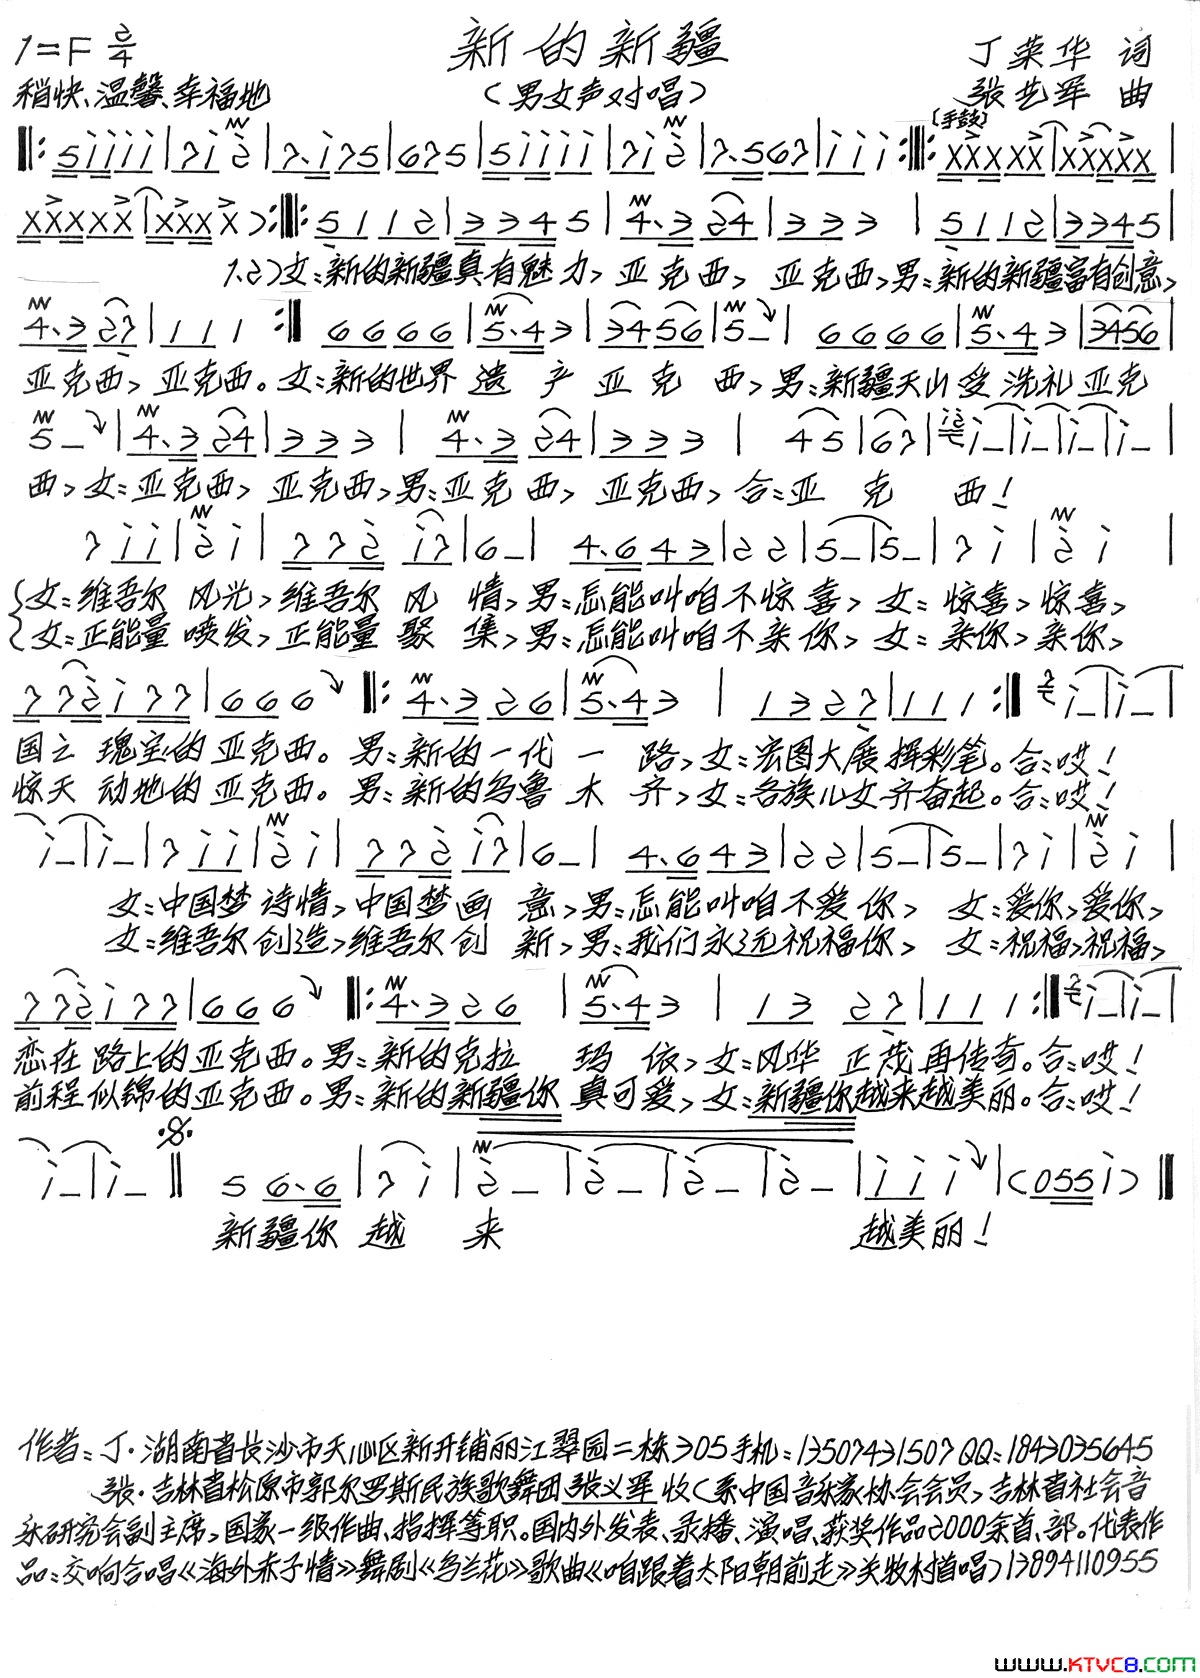 新的新疆
1=F 2/4
丁荣华 词
稍快、温馨、幸福地
(男女声对唱)
张艺军 曲
[手鼓]
1.2)女:新的新疆真有魅力,亚克西,亚克西,男:新的新疆富有创意,
亚克西,亚克西。女:新的世界遗产亚克西,男:新疆天山受洗礼亚克
西,女:亚克西,亚克西,男:亚克西,亚克西,合:亚克西!
女:维吾尔风光,维吾尔风情,男:怎能叫咱不惊喜,女:惊喜,惊喜,
女:正能量喷发,正能量聚集,男:怎能叫咱不亲你,女:亲你,亲你,
国之瑰宝的亚克西。男:新的一代一路,女:宏图大展挥彩笔。合:哎!
惊天动地的亚克西。男:新的乌鲁木齐,女:各族儿女齐奋起。合:哎!
女:中国梦诗情,中国梦画意,男:怎能叫咱不爱你,女:爱你,爱你,
女:维吾尔创造,维吾尔创新,男:我们永远祝福你,女:祝福,祝福,
恋在路上的亚克西。男:新的克拉玛依,女:风华正茂再传奇。合:哎!
前程似锦的亚克西。男:新的新疆你真可爱,女:新疆你越来越美丽。合:哎!
新疆你越来越美丽!
作者:丁·湖南省长沙市天心区新开铺丽江翠园二栋305手机:13507431507QQ:1843035645
张·吉林省松原市郭尔罗斯民族歌舞团张义军收(系中国音乐家协会会员,吉林省社会音
乐研究会副主席,国家一级作曲、指挥等职。国内外发表、录播、演唱、获奖作品2000余首、部。代表作
品:交响合唱《海外赤子情》舞剧《乌兰花》歌曲《咱跟着太阳朝前走》关牧村首唱)13894110955
www.KTVC8.com